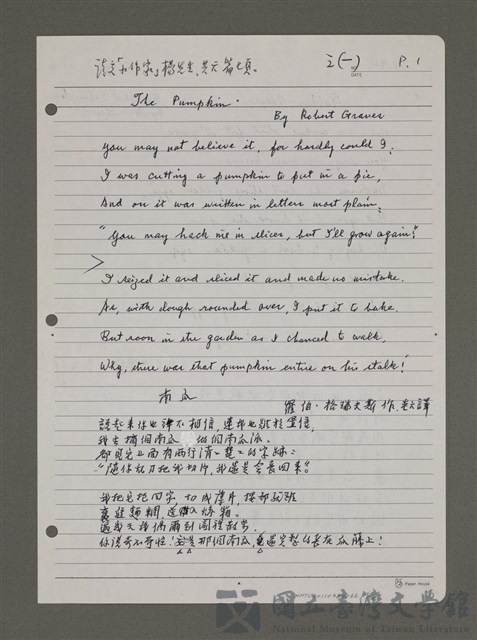 請交「小作家」楊先生, 共六篇七頁。
三(一) P. 1
NO.
DATE
The Pumpkin.
By Robert Graves
You may not believe it, for hardly could I;
I was cutting a pumpkin to put in a pie,
And on it was written in letters most plain:
"You may hack me in slices, but I'll grow again!"
I seized it and sliced it and made no mistake.
As, with dough rounded over, I put it to bake.
But soon in the garden as I chanced to walk,
Why, there was that pumpkin entire on his stalk!
南瓜
羅伯·格瑞夫斯 作 譯
說起來你也許不相信,連我也難於置信,
我去摘個南瓜 做個南瓜派。
卻見它上面有兩行清清楚楚的字跡:
"隨你亂刀把我切片,我還是會長回來。"
我把它 切成薄片
裹進麵糊,送進烤箱。
過幾天我偶爾到園裡
你說奇不奇怪!這是那個南瓜,竟還完整的長在瓜藤上!
Paper House
國立臺灣文學館
National Museum of Taiwan Literature